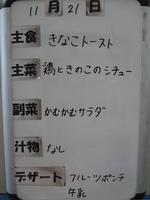 11月21日
主食 きなこトースト
主菜 鶏ときのこのシチュー
副菜 かむかむサラダ
汁物 なし
デザート フルーツポンチ
牛乳